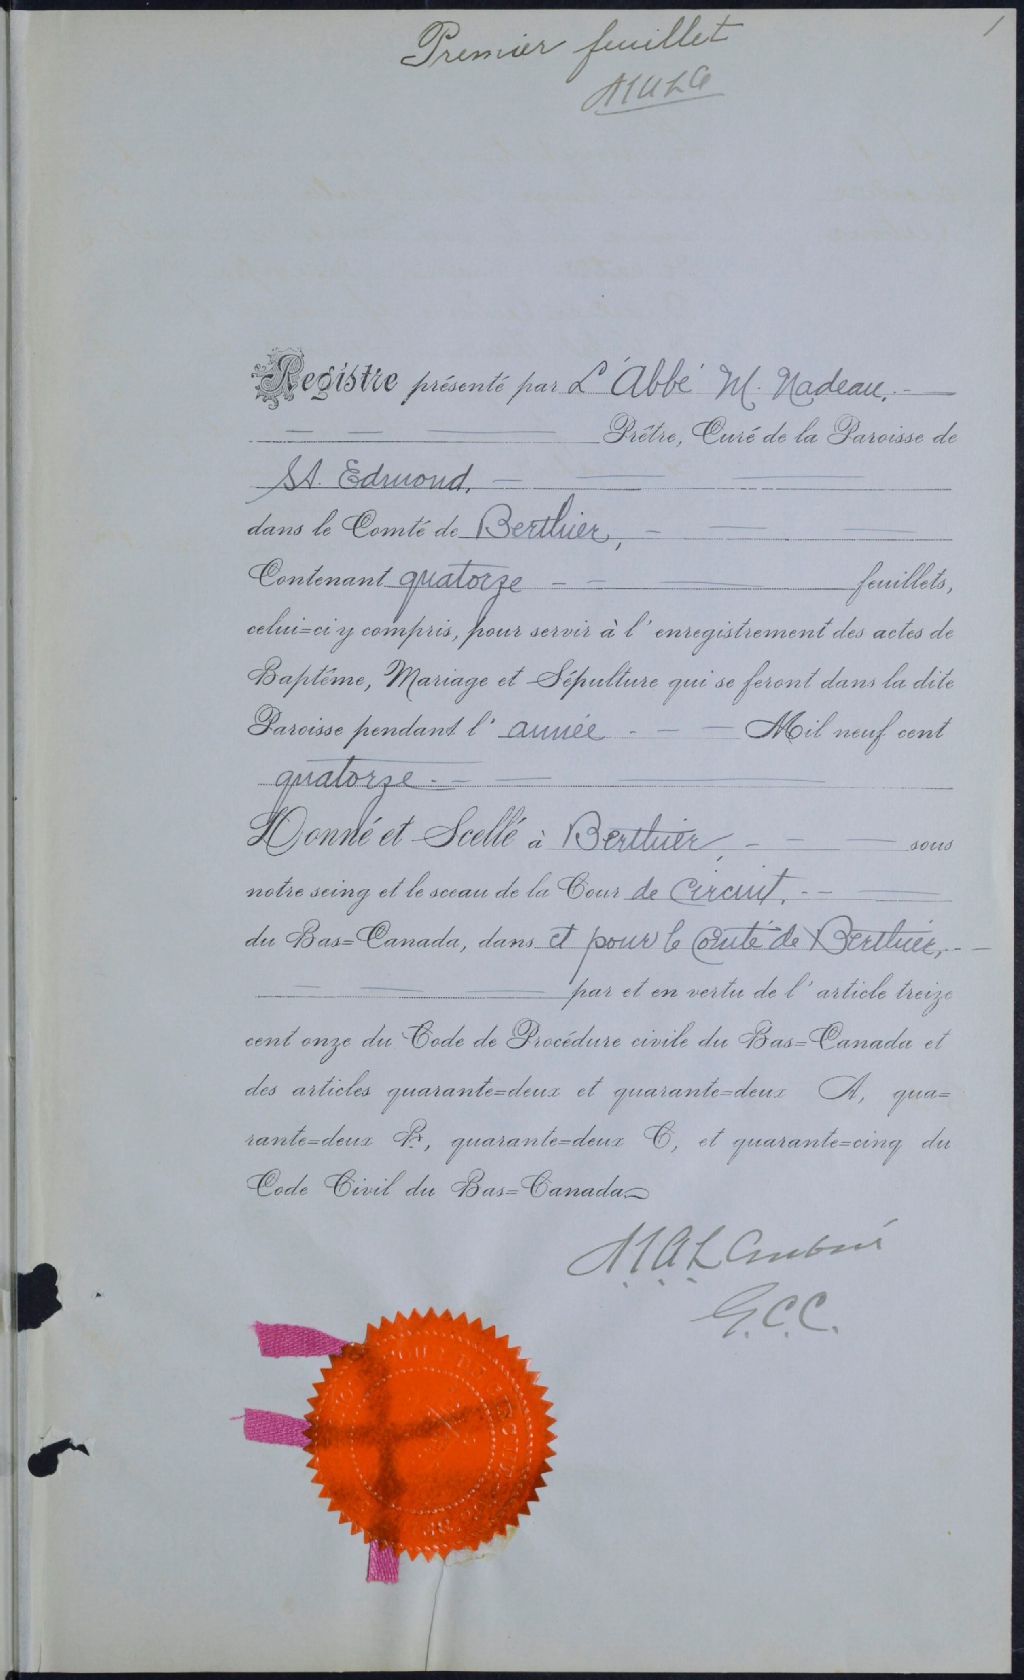 1
Premier feuillet
Registre présenté par L'Abbé M. Nadeau.
Prêtre, Curé de la Paroisse de
St. Edmond,
dans le Comté de Berthier,
Contenant quatorze feuillets,
celui=ci y compris, pour servir à l'enregistrement des actes de
Baptême, Mariage et Sépulture qui se feront dans la dite
Paroisse pendant l'année Mil neuf cent
quatorze.
Donné et Scellé à Berthier, sous
notre seing et le sceau de la Cour de Circuit,
du Bas=Canada, dans et pour le Comté de Berthier,
par et en vertu de l'article treize
cent onze du Code de Procédure civile du Bas=Canada et
des articles quarante=deux et quarante=deux A, qua=
rante=deux B, quarante=deux C, et quarante=cinq du
Code Civil du Bas=Canada
G.C.C.